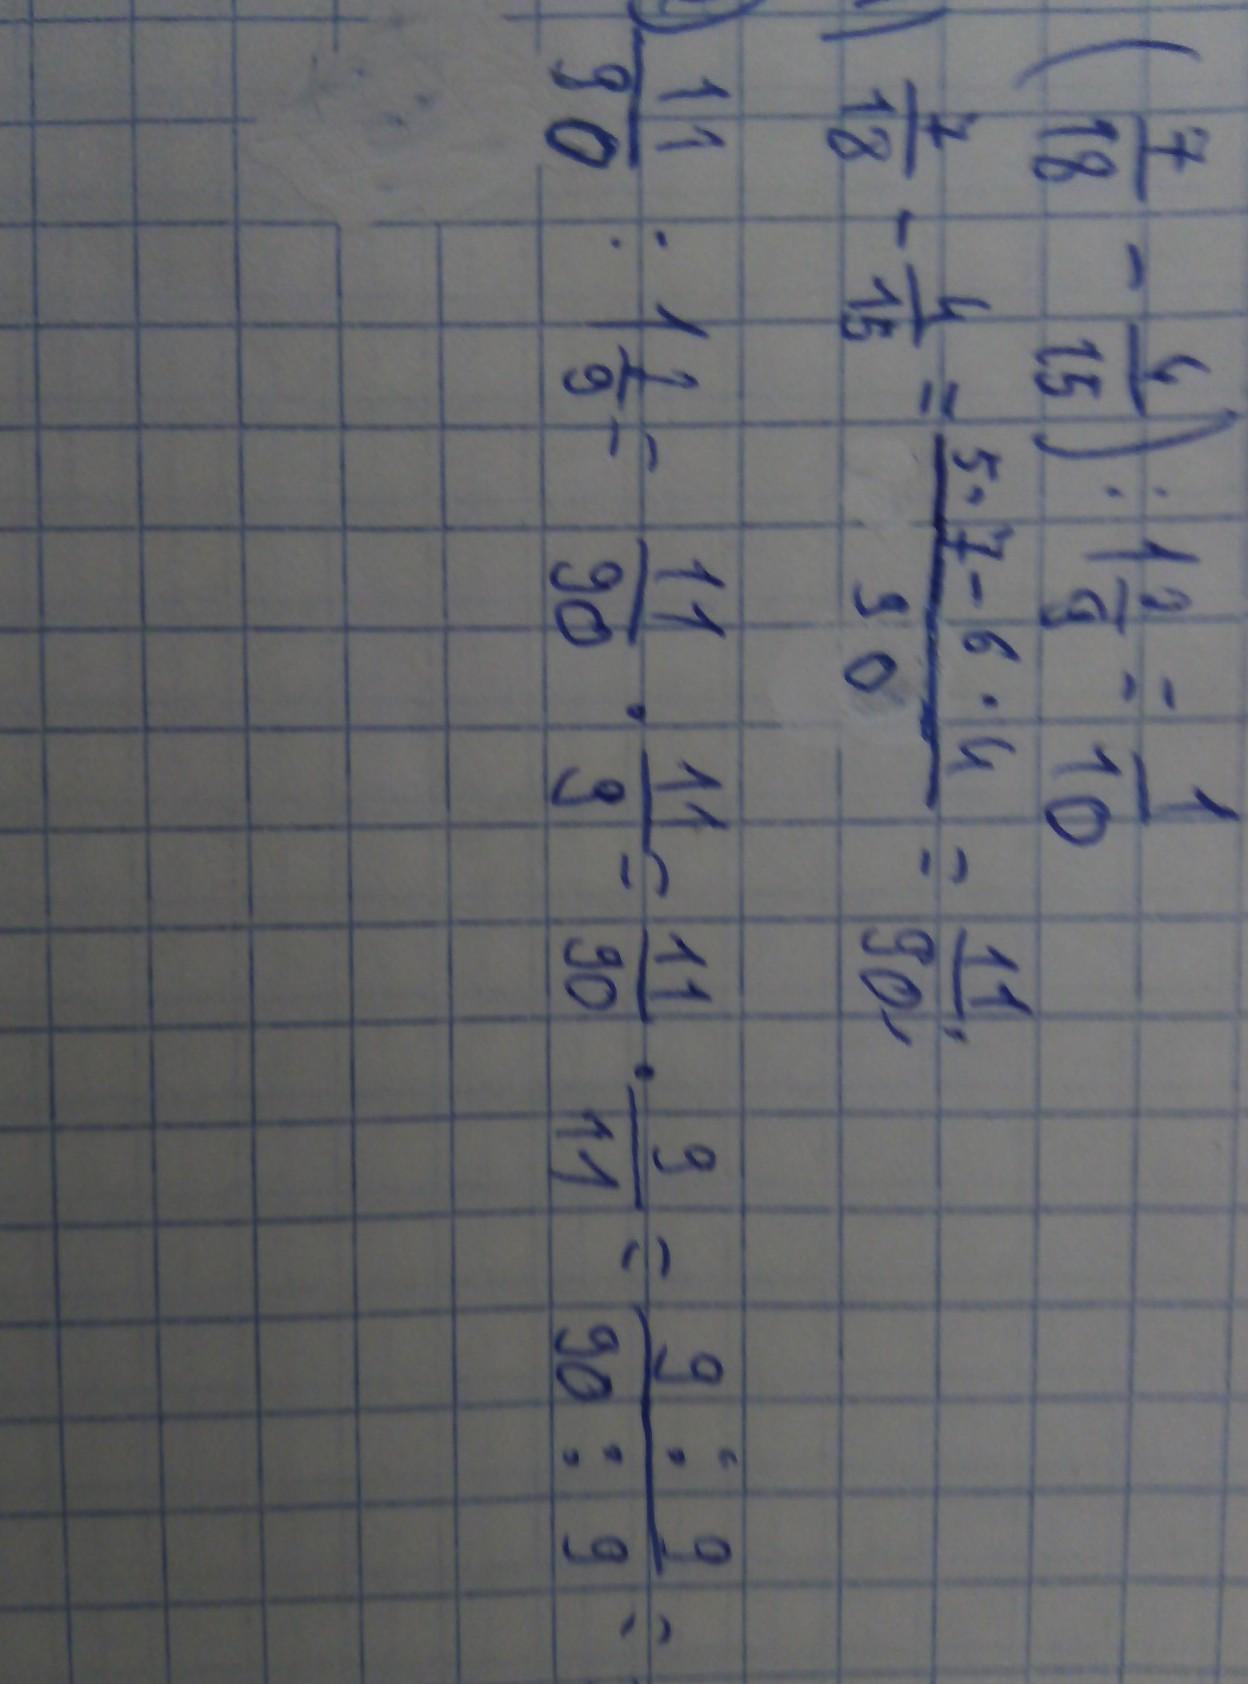 (7/18 - 4/15) : 1 2/9 = 1/10
) 7/18 - 4/15 = 5·7-6·4/90 = 11/90,
) 11/90 : 1 1/9 = 11/90 · 11/9 = 11/90 · 9/11 = 9:9/90:9 =